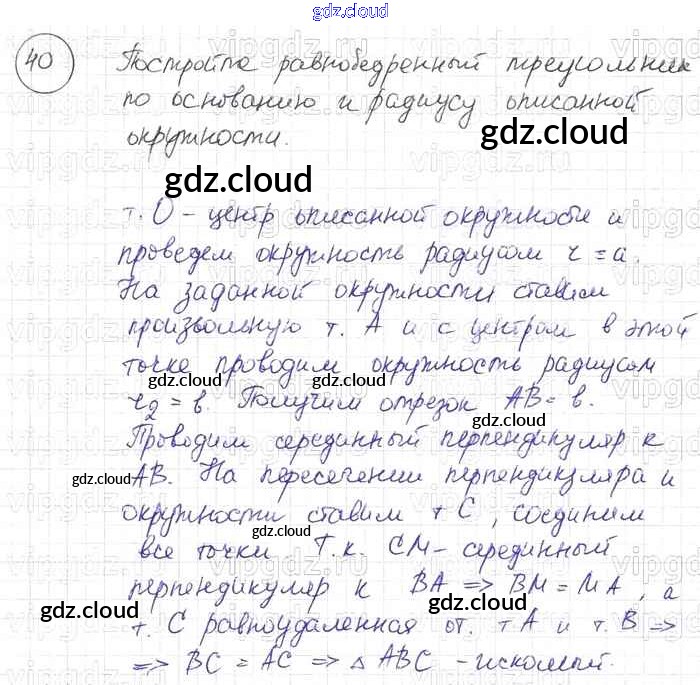 gdz.cloud
40
Постройте равнобедренный треугольник
по основанию и радиусу описанной
окружности.
gdz.cloud
gdz.cloud
т. О - центр описанной окружности и
проведем окружность радиусом r = a.
На заданной окружности ставим
произвольную т. А и с центром в этой
точке проводим окружность радиусом
gdz.cloud gdz.cloud
r2 = b. Получим отрезок AB = b.
gdz.cloud
Проводим серединный перпендикуляр к
gdz.cloud
AB. На пересечении перпендикуляра и
окружности ставим т С, соединим
gdz.cloud
все точки. Т.к. CM - серединный
перпендикуляр к BA => BM = MA, а
gdz.cloud gdz.cloud
т. С равноудаленная от. т А и т. В =>
=> BC = AC => △ ABC - искомый.
gdz.cloud